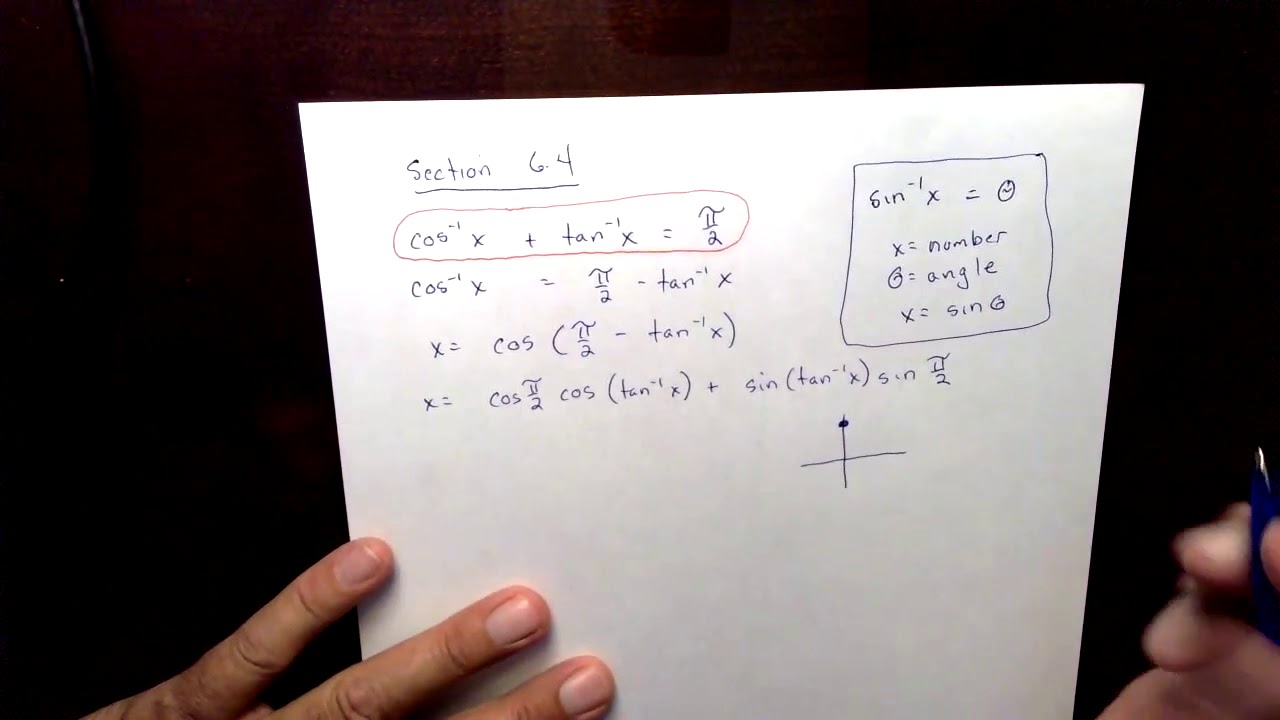 Section 6.4
cos⁻¹ x + tan⁻¹ x = π/2
cos⁻¹ x = π/2 - tan⁻¹ x
x = cos (π/2 - tan⁻¹ x)
x = cos π/2 cos (tan⁻¹ x) + sin (tan⁻¹ x) sin π/2
sin⁻¹ x = θ
x = number
θ = angle
x = sin θ